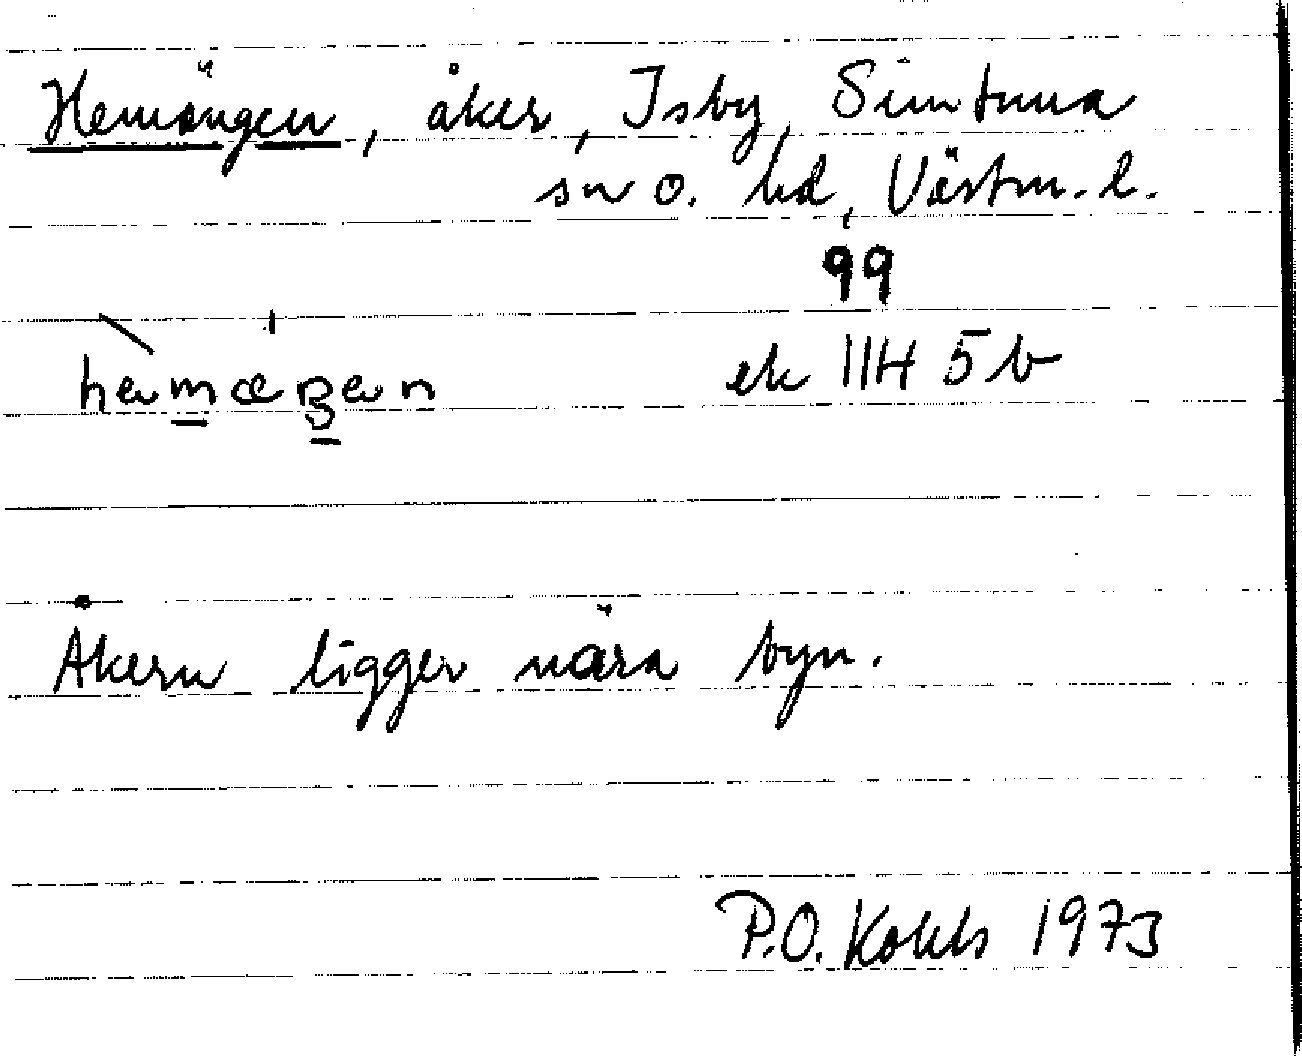 Hemängen, åker, Isby, Simtuna
sn o. hd, Västm. l.
99
ek 11H 5b
Åkern ligger nära byn.
P.O. Kokk 1973